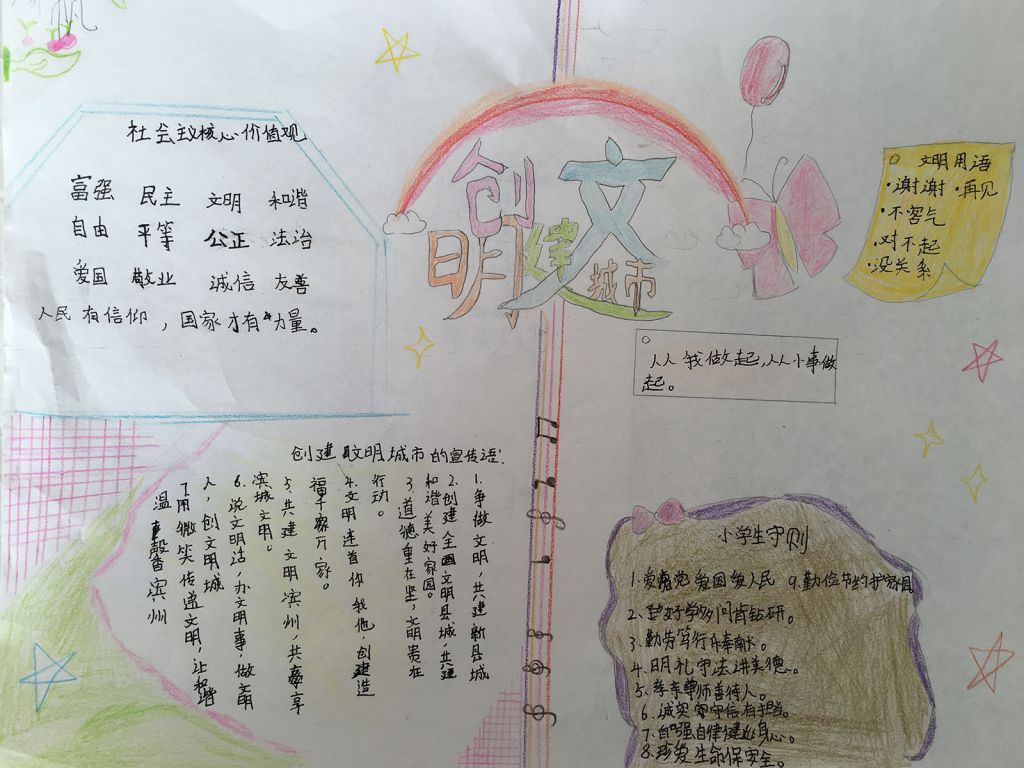 社会主义核心价值观
富强 民主 文明 和谐
自由 平等 公正 法治
爱国 敬业 诚信 友善
人民有信仰，国家才有力量。
创建文明城市
文明用语
·谢谢 ·再见
·不客气
·对不起
·没关系
从我做起，从小事做
起。
创建文明城市的宣传语：
1.争做文明，共建新县城
2.创建全国文明县城，共建
和谐美好家园。
3.道德重在坚，文明贵在
行动。
4.文明连着你我他，创建造
福千家万家。
5.共建文明滨州，共享
滨城文明。
6.说文明话，办文明事，做文明
人，创文明城
7.用微笑传递文明，让和谐
温馨滨州
小学生守则
1.爱党爱国爱人民 9.勤俭节约护家园
2.好学多问肯钻研。
3.勤劳笃行乐奉献。
4.明礼守法讲美德。
5.孝亲尊师善待人。
6.诚实守信有担当。
7.自强自律健身心。
8.珍爱生命保安全。